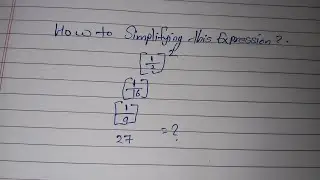 How to Simplifying this Expression?.
[1/2]²
[1/16]
[1/9]
27 =?